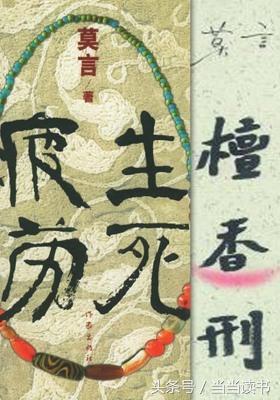 莫言
/著
生死
疲劳
作家出版社
莫言
檀香刑
头条号 / 当当读书